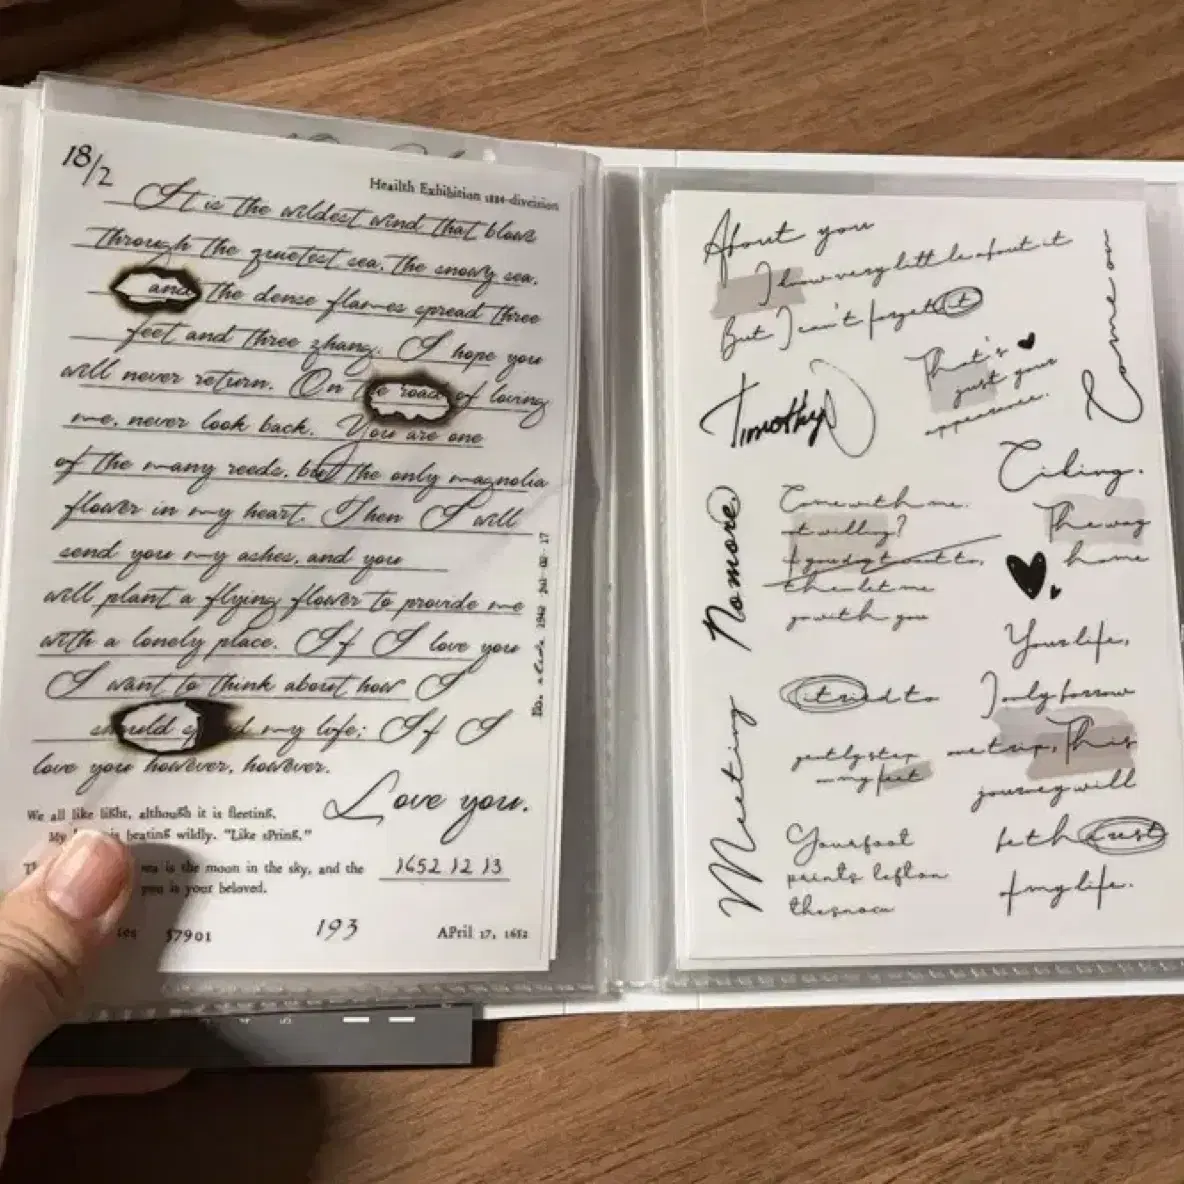 18/2
Heailth Exhibition 1884-diveision
It is the wildest wind that blows
through the quietest sea. The snowy sea.
and the dense flames spread three
feet and three zhang. I hope you
will never return. On the road of loving
me, never look back. You are one
of the many reeds, but the only magnolia
flower in my heart. Then I will
send you my ashes, and you
will plant a flying flower to provide me
with a lonely place. If I love you
I want to think about how I
should spend my life; If I
love you however, however.
Love you.
We all like light, although it is fleeting.
My is beating wildly. "Like sPring."
sea is the moon in the sky, and the
you is your beloved.
1652 12 13
$7901
193
APril 17, 1652
About you
I know very little about it
But I can't forget it
That's
just your
appearence.
Come on
Timothy
Tiding.
Come with me.
not willing?
If you don't want to,
then let me
go with you
No more.
The way
home
Your life,
I only borrow
one trip, This
journey will
be the rest
of my life.
I tried to
gently step
on my feet
Meeting
Your foot
prints left on
the snow